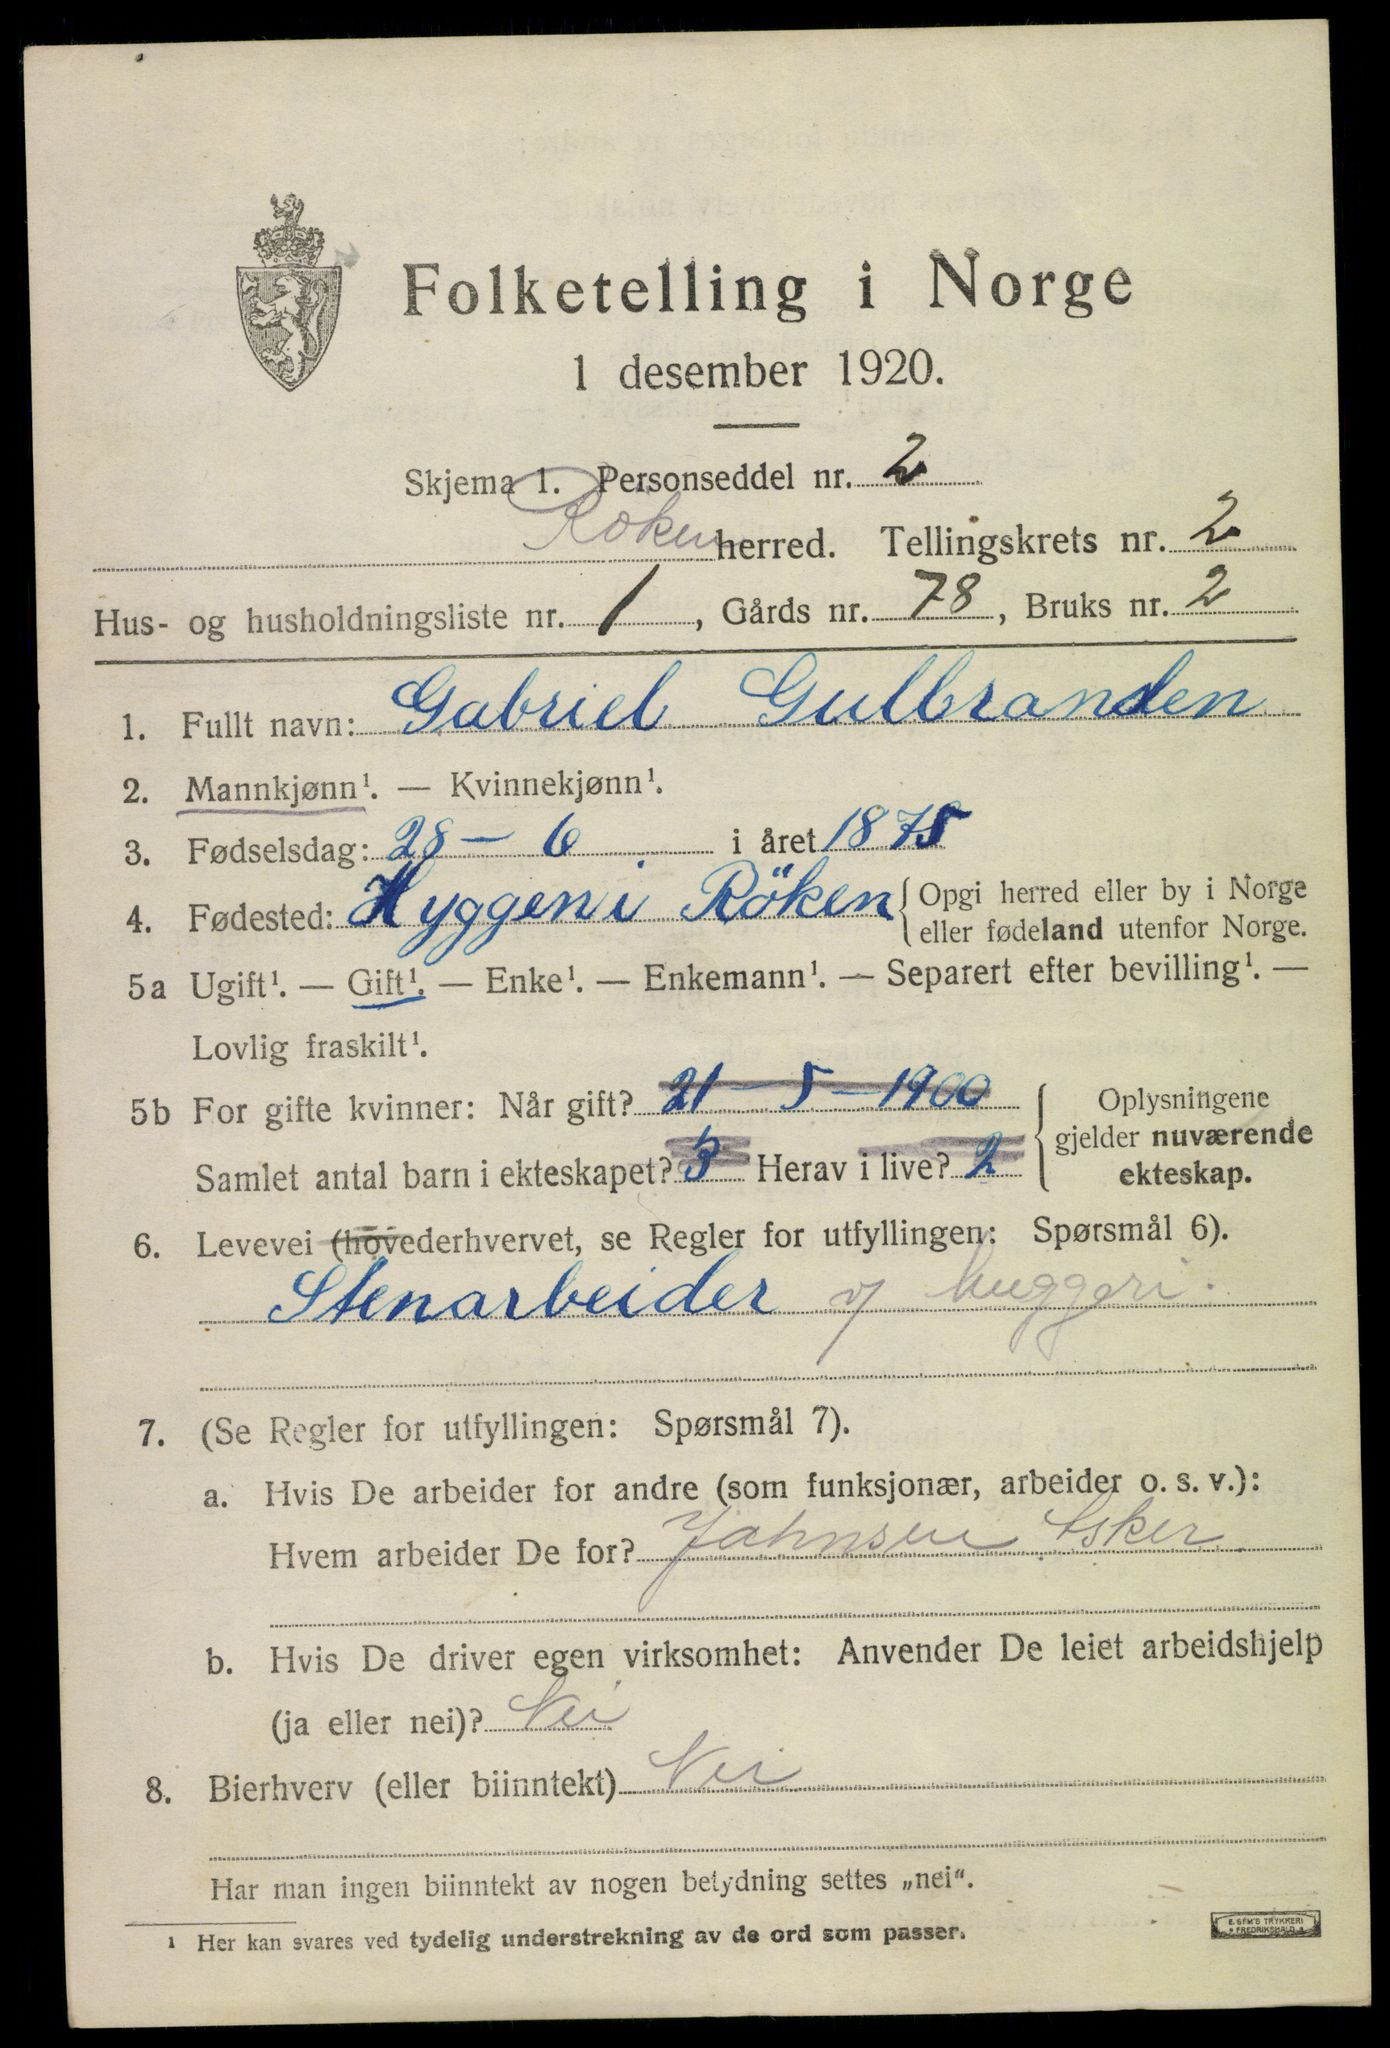 Folketelling i Norge
1 desember 1920.
Skjema 1. Personseddel nr. 2
Røken herred. Tellingskrets nr. 2
Hus- og husholdningsliste nr. 1, Gårds nr. 78, Bruks nr. 2
1. Fullt navn: Gabriel Gulbransen
2. Mannkjønn¹. — Kvinnekjønn¹.
3. Fødselsdag: 28 – 6 i året 1875
4. Fødested: Hyggen i Röken { Opgi herred eller by i Norge
eller fødeland utenfor Norge.
5a Ugift¹. — Gift¹. — Enke¹. — Enkemann¹. — Separert efter bevilling¹. —
Lovlig fraskilt¹.
5b For gifte kvinner: Når gift? 21 – 5 – 1900
Samlet antal barn i ekteskapet? 3 Herav i live? 2
{ Oplysningene
gjelder nuværende
ekteskap.
6. Levevei (hovederhvervet, se Regler for utfyllingen: Spørsmål 6).
Stenarbeider v/ huggeri.
7. (Se Regler for utfyllingen: Spørsmål 7).
a. Hvis De arbeider for andre (som funksjonær, arbeider o. s. v.):
Hvem arbeider De for? Johnsen
b. Hvis De driver egen virksomhet: Anvender De leiet arbeidshjelp
(ja eller nei)? Nei
8. Bierhverv (eller biinntekt) Nei
Har man ingen biinntekt av nogen betydning settes „nei".
¹ Her kan svares ved tydelig understrekning av de ord som passer.
E. SEM'S TRYKKERI
FREDRIKSHALD